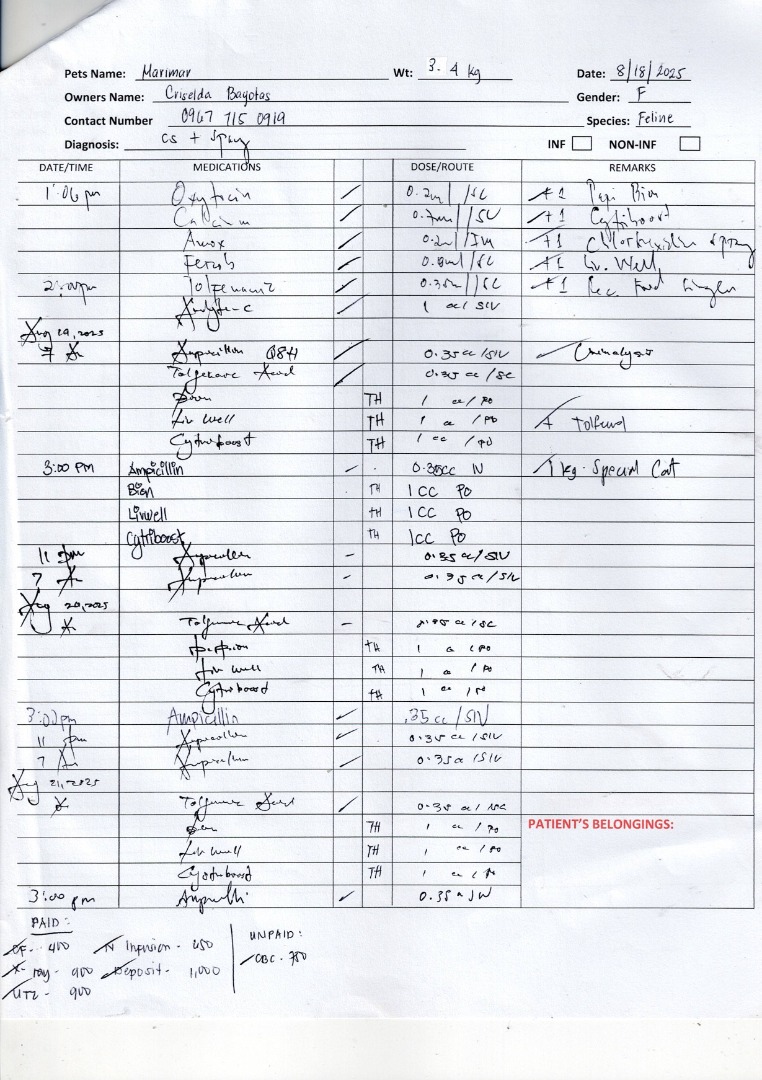 Pets Name: Marimar Wt: 3.4 kg Date: 8/18/2025
Owners Name: Criselda Bayotas Gender: F
Contact Number 0967 715 0919 Species: Feline
Diagnosis: CS + Spay INF NON-INF
DATE/TIME MEDICATIONS DOSE/ROUTE REMARKS
1:06 pm Oxytocin /SC +1 Bion
Calcium +1 Cytriboost
Amox 0.2ml /IM +1 Chlorhexidine spray
/SC +1 Liv. Well
0.35ml /SC +1 Rec. Food
1 cc/ SIV
Aug 19, 2025
7 Am Ampicillin Q8H 0.35cc/SIV Urinalysis
Tolfenamic Acid 0.35 cc/SC
TH 1 cc/PO
Liv well TH 1 cc/PO + Tolfenol
Cytriboost TH 1 cc/PO
3:00 PM Ampicillin 0.35cc IV 1kg. Special Cat
Bion TH 1CC PO
Livwell TH 1CC PO
Cytriboost TH 1CC PO
11 pm Ampicillin 0.35cc/SIV
7 Am Ampicillin 0.35cc/SIV
Aug 20, 2025
Tolfenamic Acid /SC
TH 1 cc/PO
Liv well TH 1 cc/PO
Cytriboost TH 1 cc/PO
3:00pm Ampicillin .35 cc/SIV
11 pm Ampicillin 0.35cc/SIV
7 Am Ampicillin 0.35cc/SIV
Aug 21, 2025
Tolfenamic Acid 0.35 cc/SC
TH 1 cc/PO
Liv well TH 1 cc/PO
Cytriboost TH 1 cc/PO
3:00 pm Ampicillin 0.35
PATIENT'S BELONGINGS:
PAID:
CF - 400 IV Infusion -
X-ray - 900 Deposit - 1,000
UTZ - 900
UNPAID:
CBC - 750